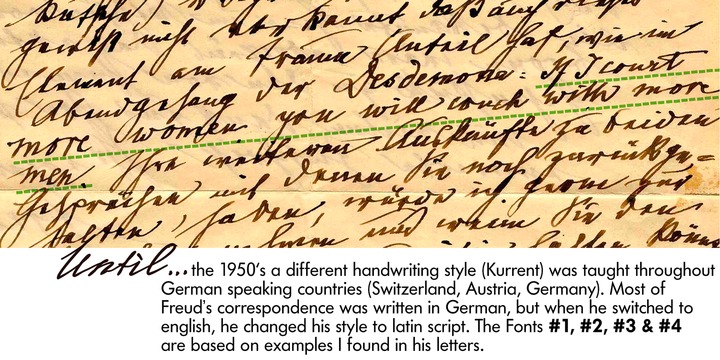 gewiß nicht
Element am Anteil hat, wie im
Abendgesang der Desdemona: If I court
more women you will couch with more
men. Ihre weiteren Auskünfte zu beiden
Gesprächen mit denen Sie noch zurückge=
halten haben, würde ich gerne zur
nehmen und wenn Sie den
Until... the 1950's a different handwriting style (Kurrent) was taught throughout
German speaking countries (Switzerland, Austria, Germany). Most of
Freud's correspondence was written in German, but when he switched to
english, he changed his style to latin script. The Fonts #1, #2, #3 & #4
are based on examples I found in his letters.